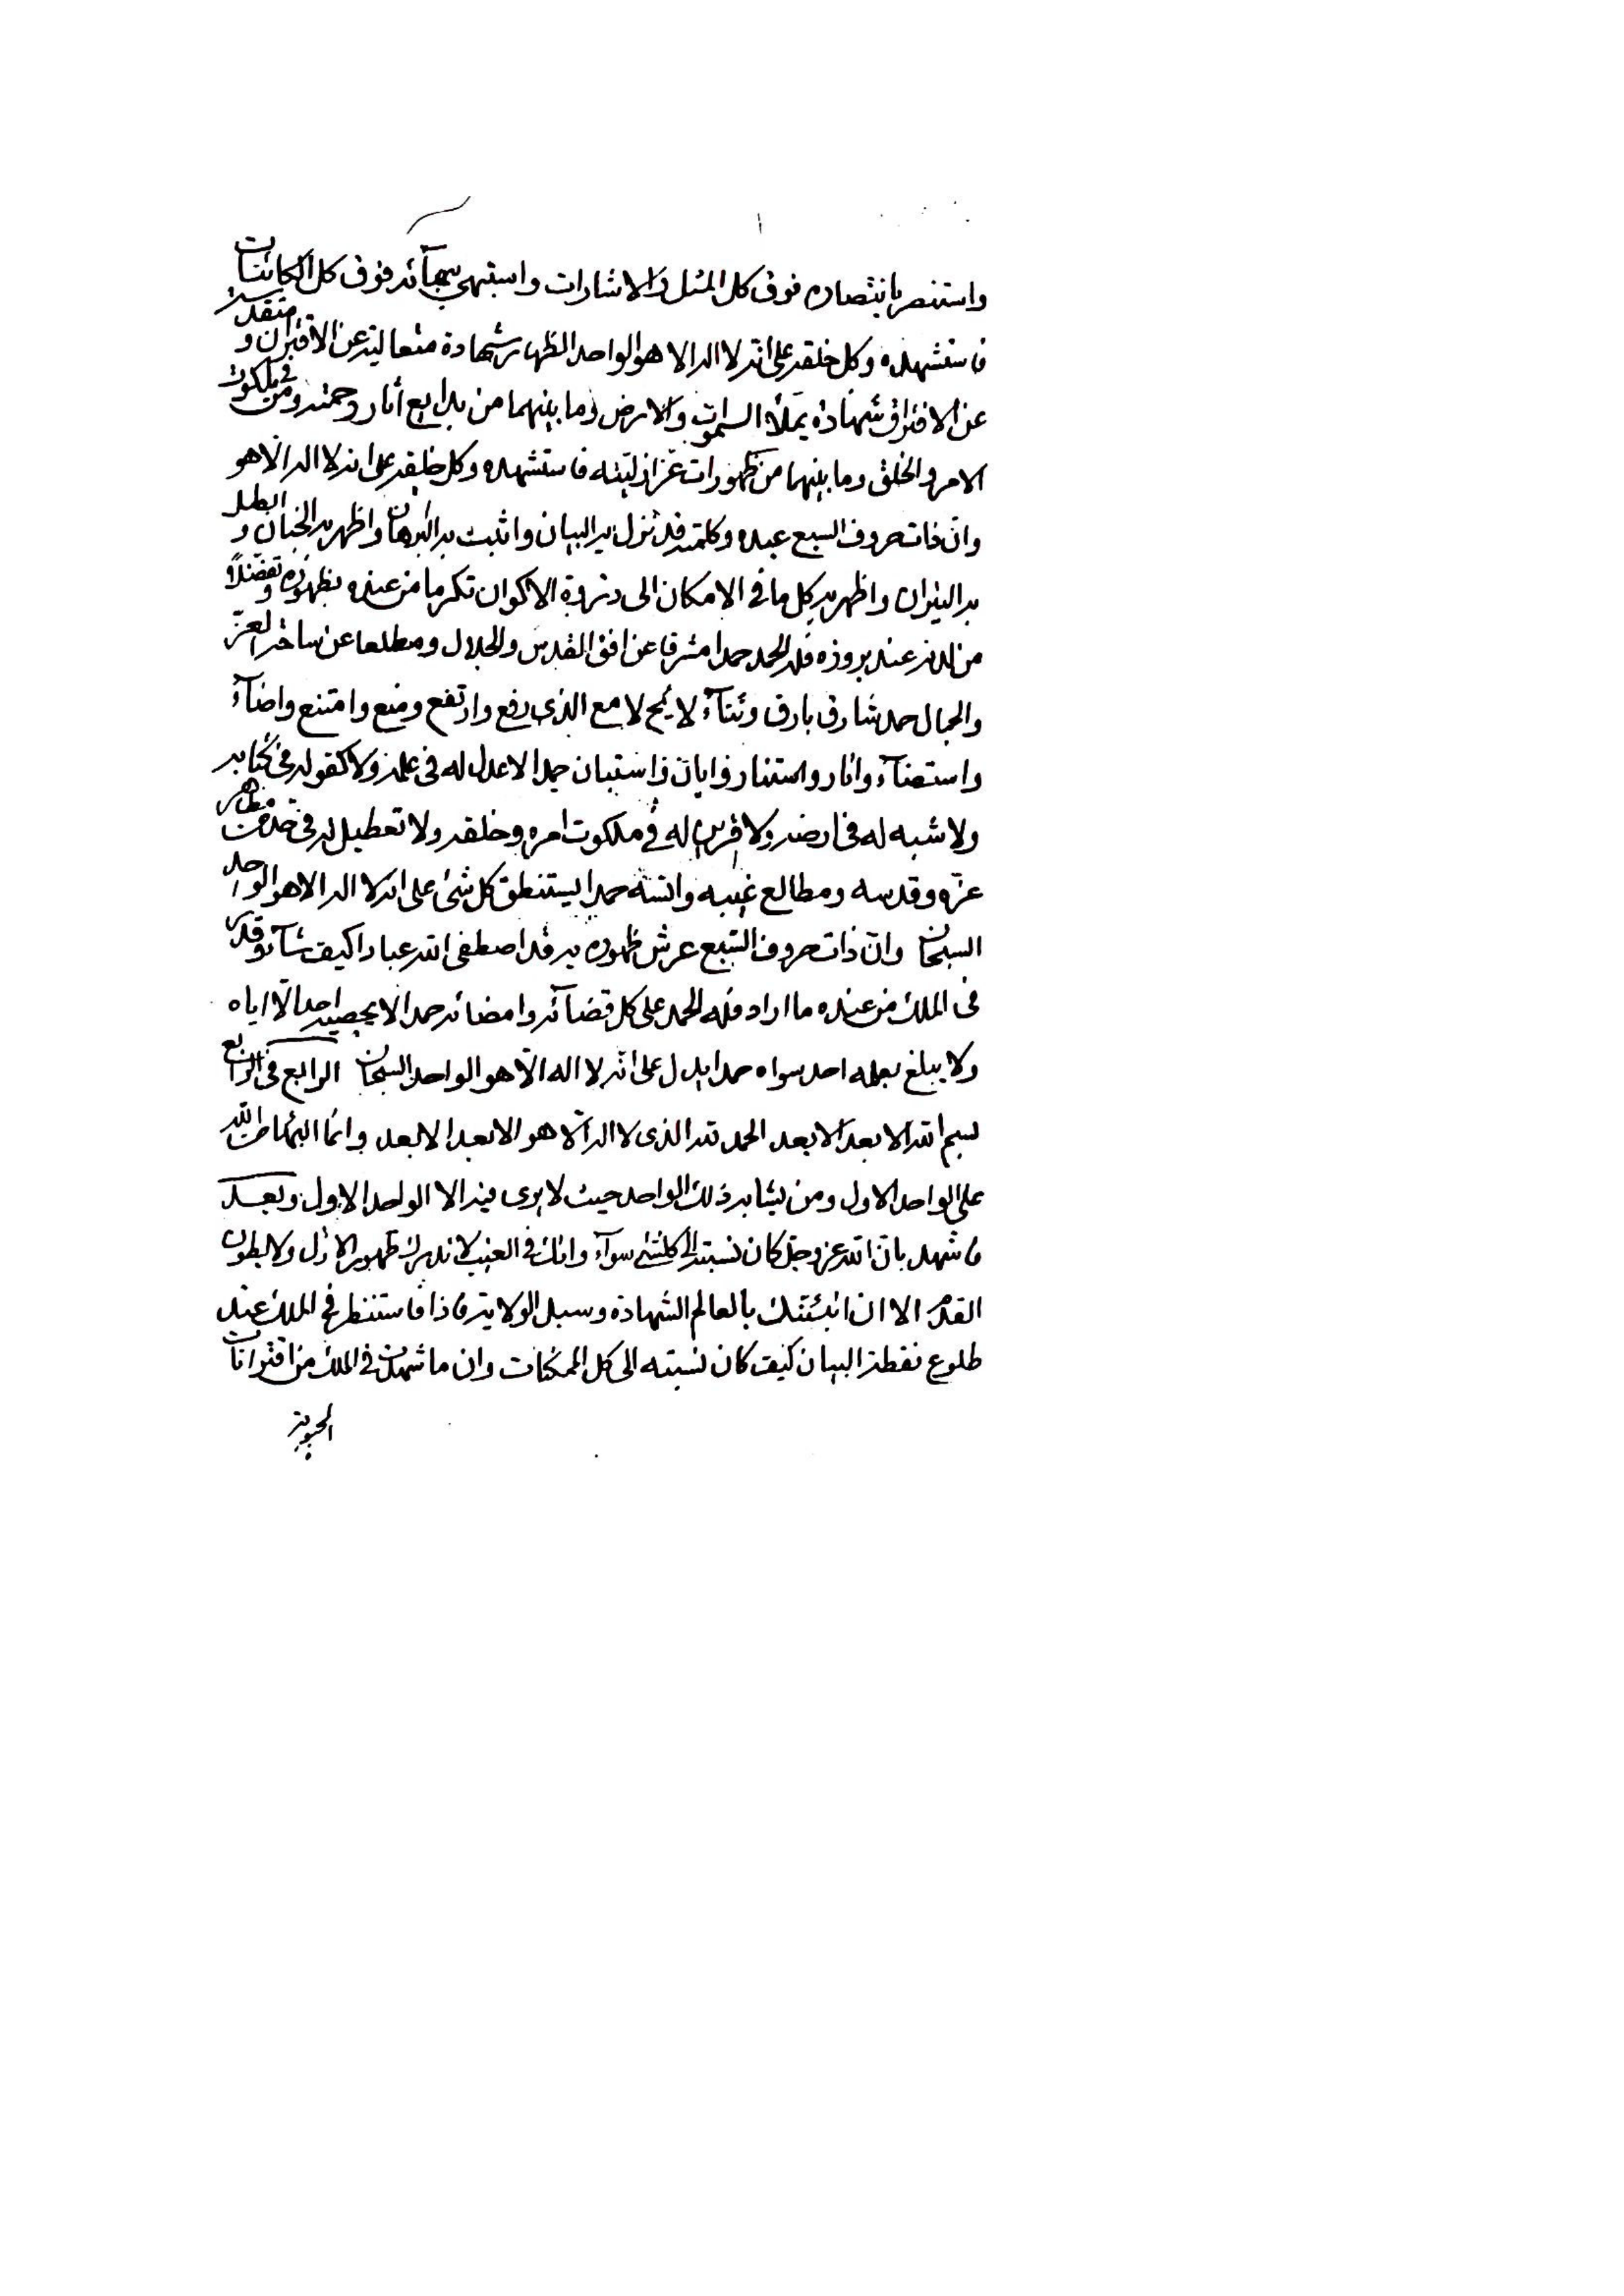 واستنصر بانتصاره فوق كل المثل والاشارات واستبهى ببهآئه فوق كل الكائنات
فاستشهده وكل خلقه على انه لا اله الا هو الواحد الظهار شهادة متعالية عن الاقتران و متقدسة
عن الافتراق شهادة يملأ السموات والارض وما بينهما من بدايع آثار رحمته ومن في ملكوت
الامر والخلق وما بينهما من ظهورات عز ازليته فاستشهده وكل خلقه على انه لا اله الا هو
وان ذات حروف السبع عبده وكلمته قد نزل به البيان واثبت به البرهان واظهر به الجنان و ابطل
به النيران واظهر به كل ما في الامكان الى ذروة الاكوان تكرما من عنده بظهوره و تفضلاً
من لدنه عند بروزه فله الحمد حمدا مشرقا عن افق القدس والجلال ومطلعا عن ساحة العز
والجمال حمد شارق بارق وثنآء لائح لامع الذى رفع وارتفع ومنع وامتنع واضآء
واستضآء وانار واستنار وابان واستبان حمدا لا عدل له فى علمه ولا كفو له فى كتابه
ولا شبه له فى ارضه ولا قرين له فى ملكوت امره وخلقه ولا تعطيل له فى مظاهر
عزه وقدسه ومطالع غيبه وانسه حمدا يستنطق كل شئ على انه لا اله الا هو الواحد
السبحان وان ذات حروف السبع عرش ظهوره به قد اصطفى الله عبادا كيف شآء وقدر
فى الملك من عنده ما اراد فله الحمد على كل قضآئه وامضائه حمدا لا يحصيه احد الا اياه
ولا يبلغ بعلمه احد سواه حمدا يدل على انه لا اله الا هو الواحد السبحان الرابع فى الرابع
بسم الله الابعد الابعد الحمد لله الذى لا اله الا هو الابعد الابعد وانما البهآء من الله
على الواحد الاول ومن يشابه ذلك الواحد حيث لا يرى فيه الا الواحد الاول وبعد
فاشهد بان الله عز وجل كان نسبته الى كلشئ سوآء وانك فى الغيب لا تدرك ظهور الازل ولا بطون
القدم الا ان انبئتك بالعالم الشهادة وسبل الولاية فاذا فاستنظر فى الملك عند
طلوع نقطة البيان كيف كان نسبته الى كل الممكنات وان ما شهدت فى الملك من اقترانات
المحبوبية